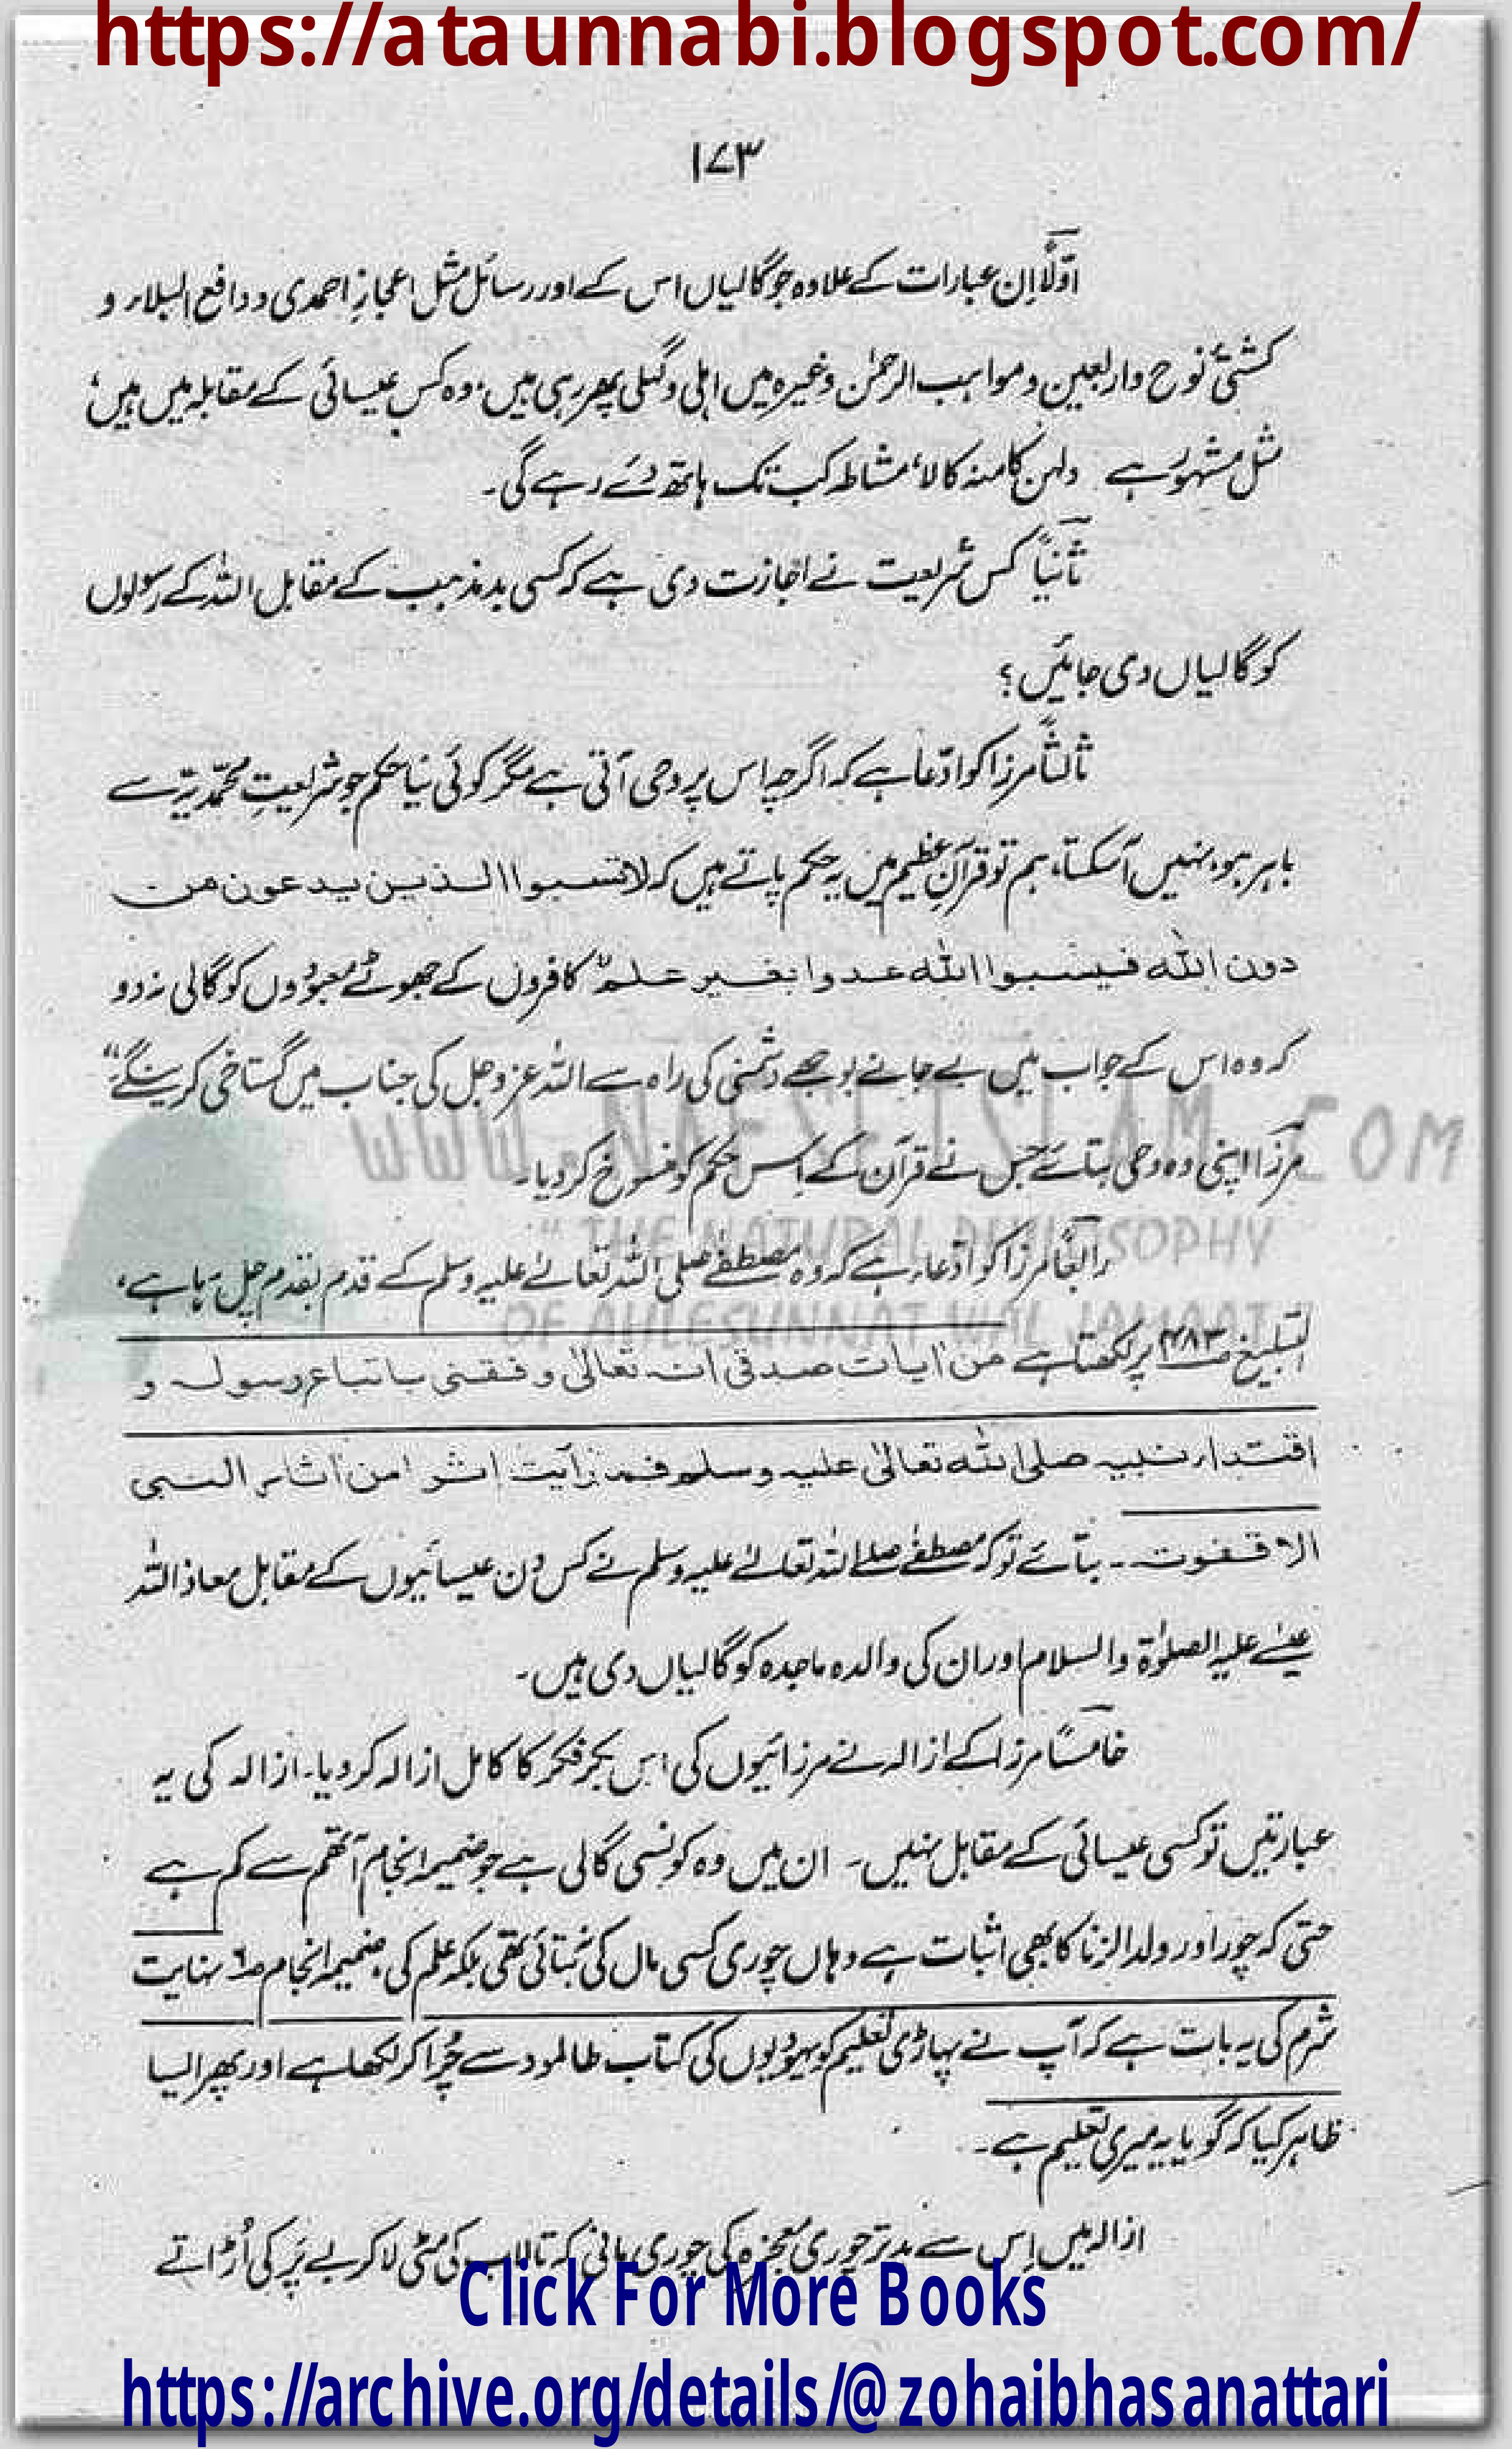 https://ataunnabi.blogspot.com/
۱۷۳
اوّلًا اِن عبارات کے علاوہ جو گالیاں اس کے اور رسائل مثل اعجازِ احمدی و دافع البلاء و
کشتیٔ نوح و اربعین و مواہب الرحمٰن وغیرہ میں اہلی و گہلی پھر رہی ہیں، وہ کس عیسائی کے مقابلہ میں ہیں،
مثل مشہور ہے دلہن کا منہ کالا، مشاطہ کب تک ہاتھ دئے رہے گی۔
ثانیاً کس شریعت نے اجازت دی ہے کہ کسی بدمذہب کے مقابل اللہ کے رسولوں
کو گالیاں دی جائیں؟
ثالثاً مرزا کو ادّعا ہے کہ اگرچہ اس پر وحی آتی ہے مگر کوئی نیا حکم جو شریعتِ محمّدیّہ سے
باہر ہو، نہیں آسکتا، ہم تو قرآنِ عظیم میں یہ حکم پاتے ہیں کہ لا تسبوا الذین یدعون من
دون اللہ فیسبوا اللہ عدوا بغیر علم کافروں کے جھوٹے معبودوں کو گالی نہ دو
کہ وہ اس کے جواب میں بے جانے بوجھے دشمنی کی راہ سے اللہ عزوجل کی جناب میں گستاخی کرینگے“
مرزا اپنی وہ وحی بتائے جس نے قرآن کے اس حکم کو منسوخ کر دیا۔
www.NAFSEISLAM.COM
"THE NATURAL PHILOSOPHY
OF AHLESUNNAT WAL JAMAAT"
رابعًا مرزا کو ادّعاء ہے کہ وہ مصطفےٰ صلی اللہ تعالےٰ علیہ وسلم کے قدم بقدم چل رہا ہے،
التبلیغ ص۴۸۳ پر لکھتا ہے من اٰیات صدقی انہ تعالیٰ وفقنی باتباع رسولہ و
اقتداء نبیہ صلی اللہ تعالیٰ علیہ وسلم فما رأیت اثرا من اٰثار النبی
الا قفوت۔ بتائے تو کہ مصطفےٰ صلے اللہ تعالےٰ علیہ وسلم نے کس دن عیسائیوں کے مقابل معاذ اللہ
عیسےٰ علیہ الصلوٰۃ والسلام اور ان کی والدہ ماجدہ کو گالیاں دی ہیں۔
خامسًا مرزا کے ازالہ نے مرزائیوں کی اس بکر فکر کا کامل ازالہ کر دیا۔ ازالہ کی یہ
عبارتیں تو کسی عیسائی کے مقابل نہیں۔ ان میں وہ کونسی گالی ہے جو ضمیمہ انجام آتھم سے کم ہے
حتی کہ چور اور ولد الزنا کا بھی اثبات ہے وہاں چوری کسی مال کی نہ بتائی تھی بلکہ علم کی، ضمیمہ انجام ص۶ نہایت
شرم کی یہ بات ہے کہ آپ نے پہاڑی تعلیم کو یہودیوں کی کتاب طالمود سے چُرا کر لکھا ہے اور پھر ایسا
ظاہر کیا کہ گویا یہ میری تعلیم ہے۔
ازالہ میں اِس سے بدتر چوری معجزہ کی چوری مانی کہ تالاب کی مٹی لا کر بے پَر کی اُڑاتے
Click For More Books
https://archive.org/details/@zohaibhasanattari